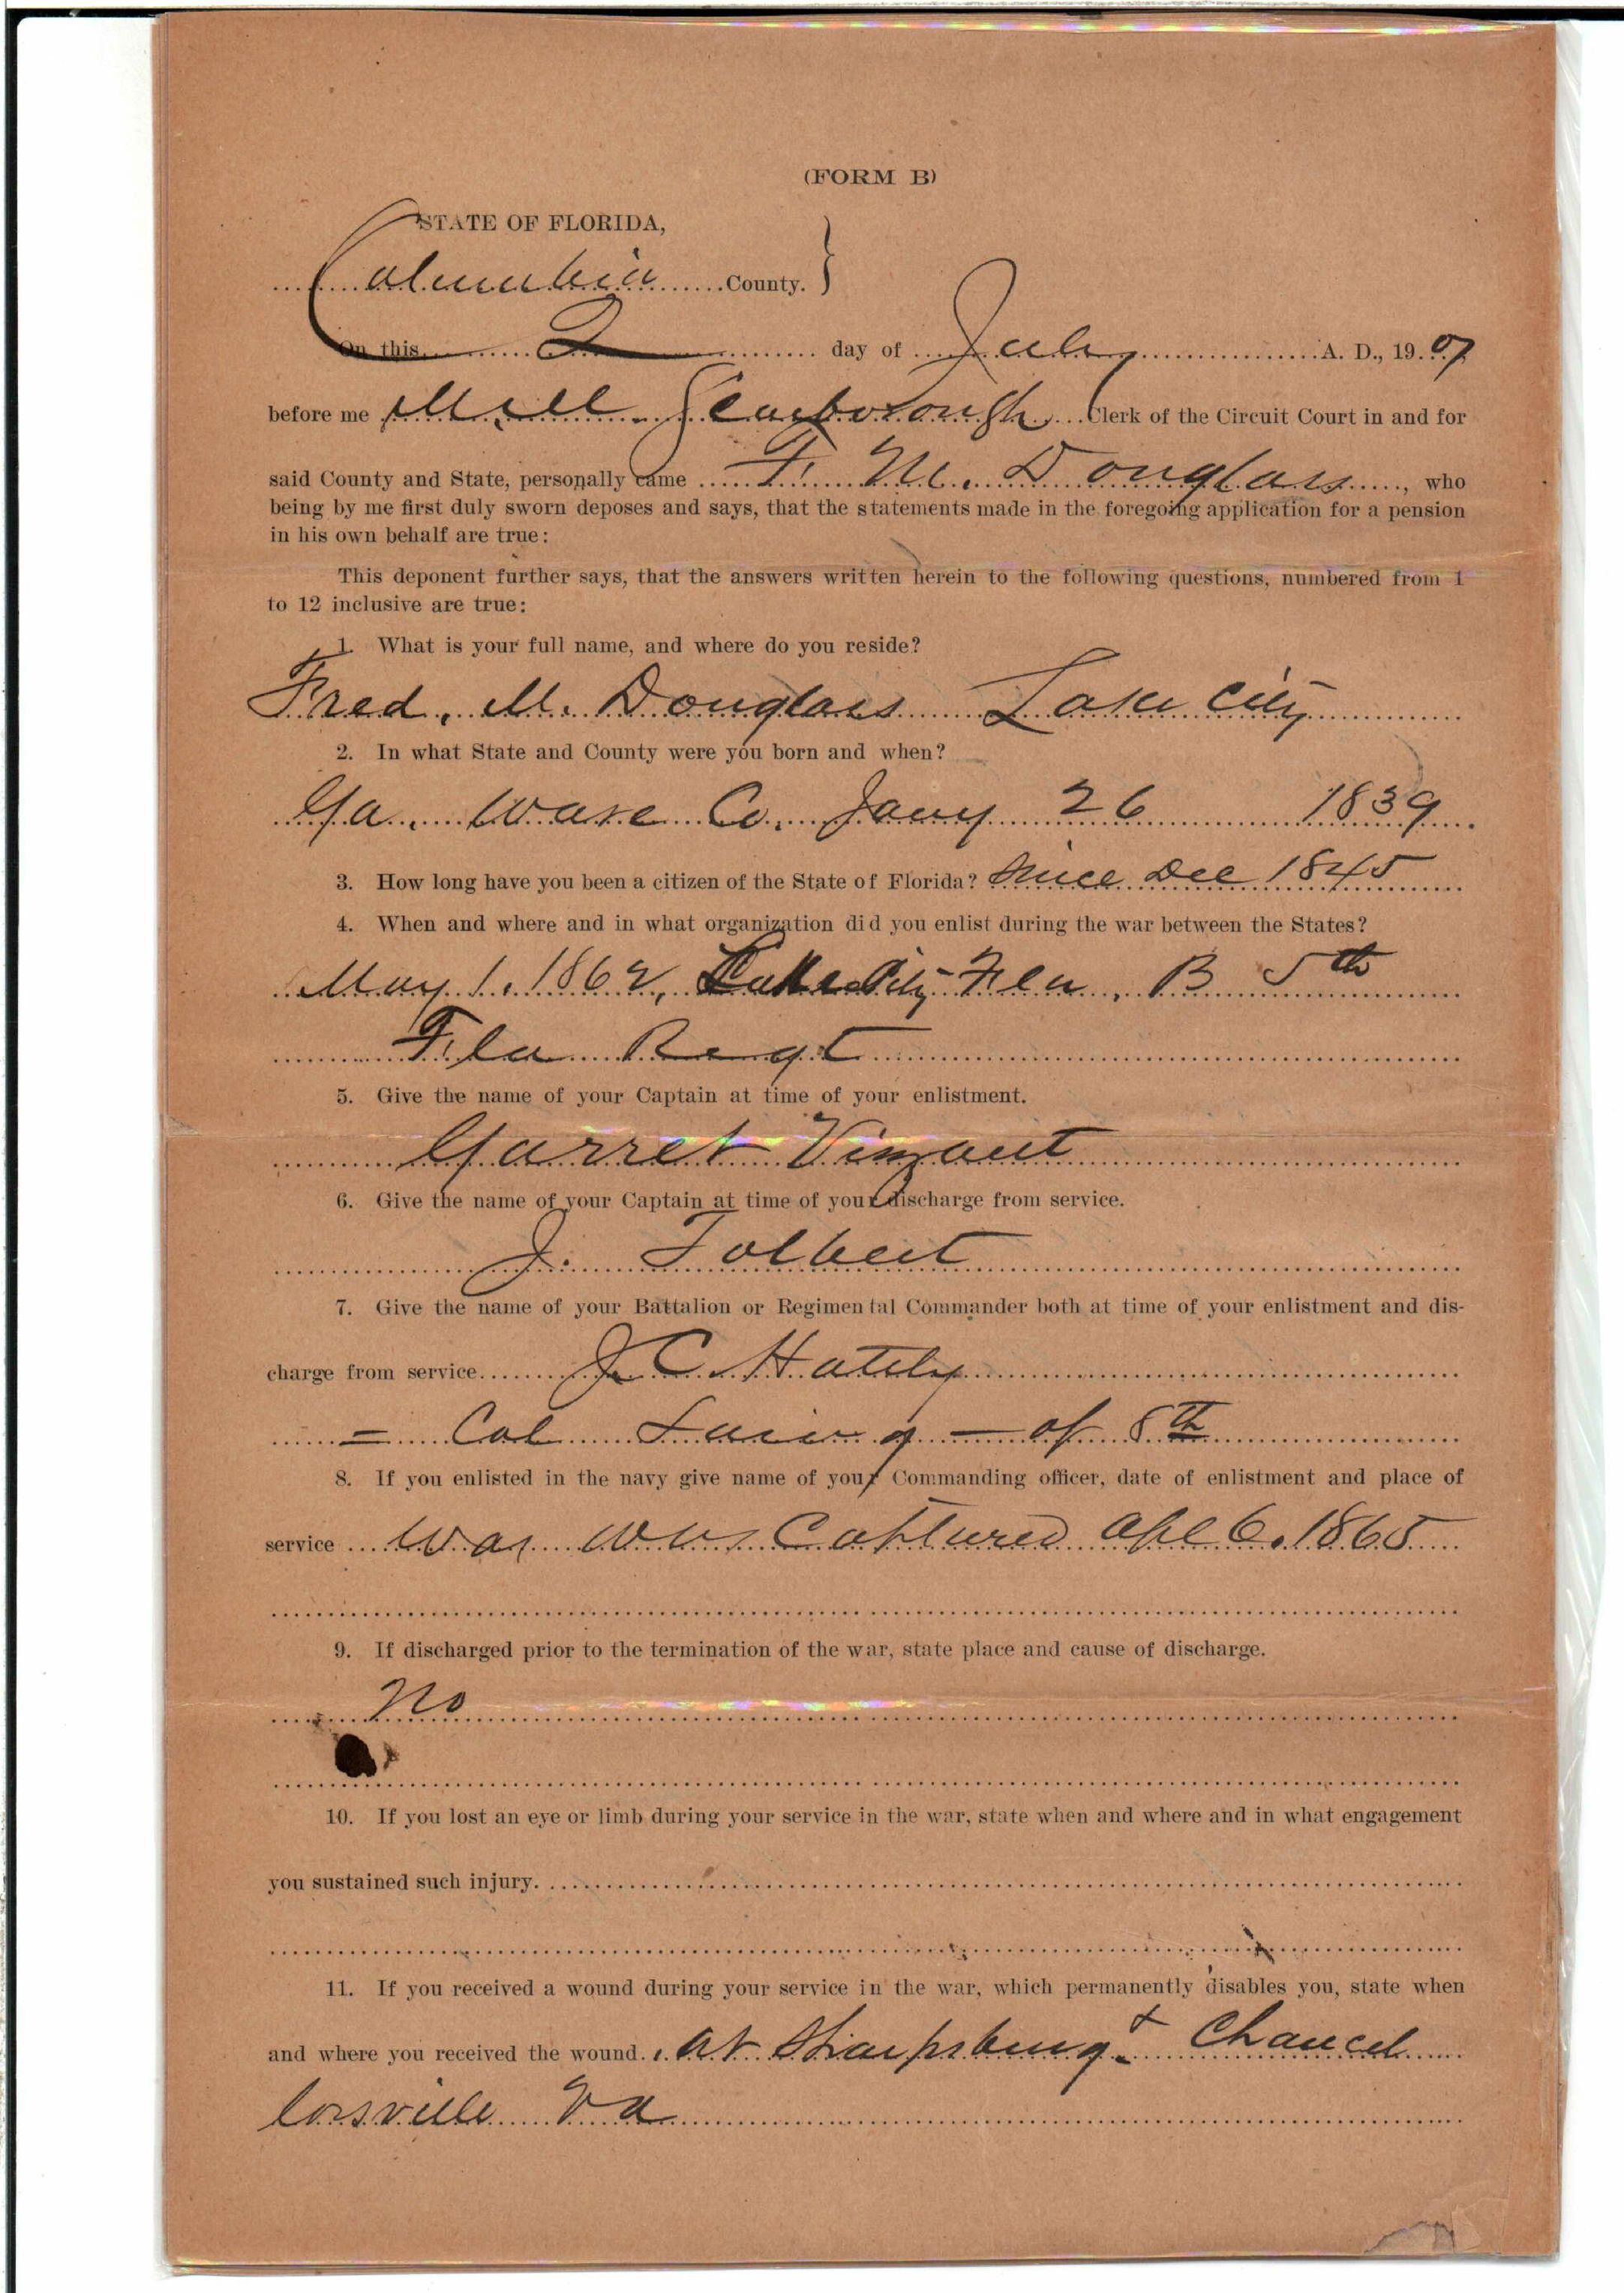 (FORM B)
STATE OF FLORIDA,
Columbia County. }
On this 2 day of July A. D., 1907
before me Scarborough Clerk of the Circuit Court in and for
said County and State, personally came F. M. Douglass, who
being by me first duly sworn deposes and says, that the statements made in the foregoing application for a pension
in his own behalf are true:
This deponent further says, that the answers written herein to the following questions, numbered from 1
to 12 inclusive are true:
1. What is your full name, and where do you reside?
Fred. M. Douglass Lake City
2. In what State and County were you born and when?
Ga. Ware Co. Jany 26 1839.
3. How long have you been a citizen of the State of Florida? Since Dec 1845
4. When and where and in what organization did you enlist during the war between the States?
May 1. 1862, Lake City Fla, B 5th
Fla Regt
5. Give the name of your Captain at time of your enlistment.
Garret Vinzant
6. Give the name of your Captain at time of your discharge from service.
J. Tolbert
7. Give the name of your Battalion or Regimental Commander both at time of your enlistment and dis-
charge from service. J C. Hately
= Col Laing - of 8th
8. If you enlisted in the navy give name of your Commanding officer, date of enlistment and place of
service Captured Apl 6. 1865
9. If discharged prior to the termination of the war, state place and cause of discharge.
No
10. If you lost an eye or limb during your service in the war, state when and where and in what engagement
you sustained such injury.
11. If you received a wound during your service in the war, which permanently disables you, state when
and where you received the wound. At Sharpsburg + Chancel
lorsville Va